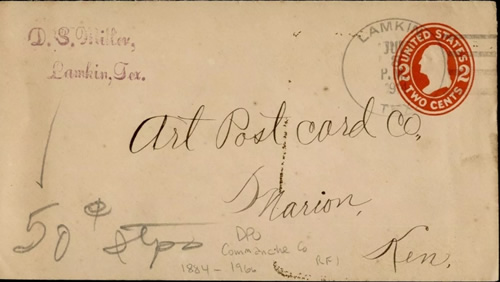 D. S. Miller,
Lamkin, Tex.
LAMKIN
P.
TE
UNITED STATES
2 2
TWO CENTS
Art Post card Co,
Marion,
Ken.
50¢
DPO
Commanche Co
1884-1966
RF1